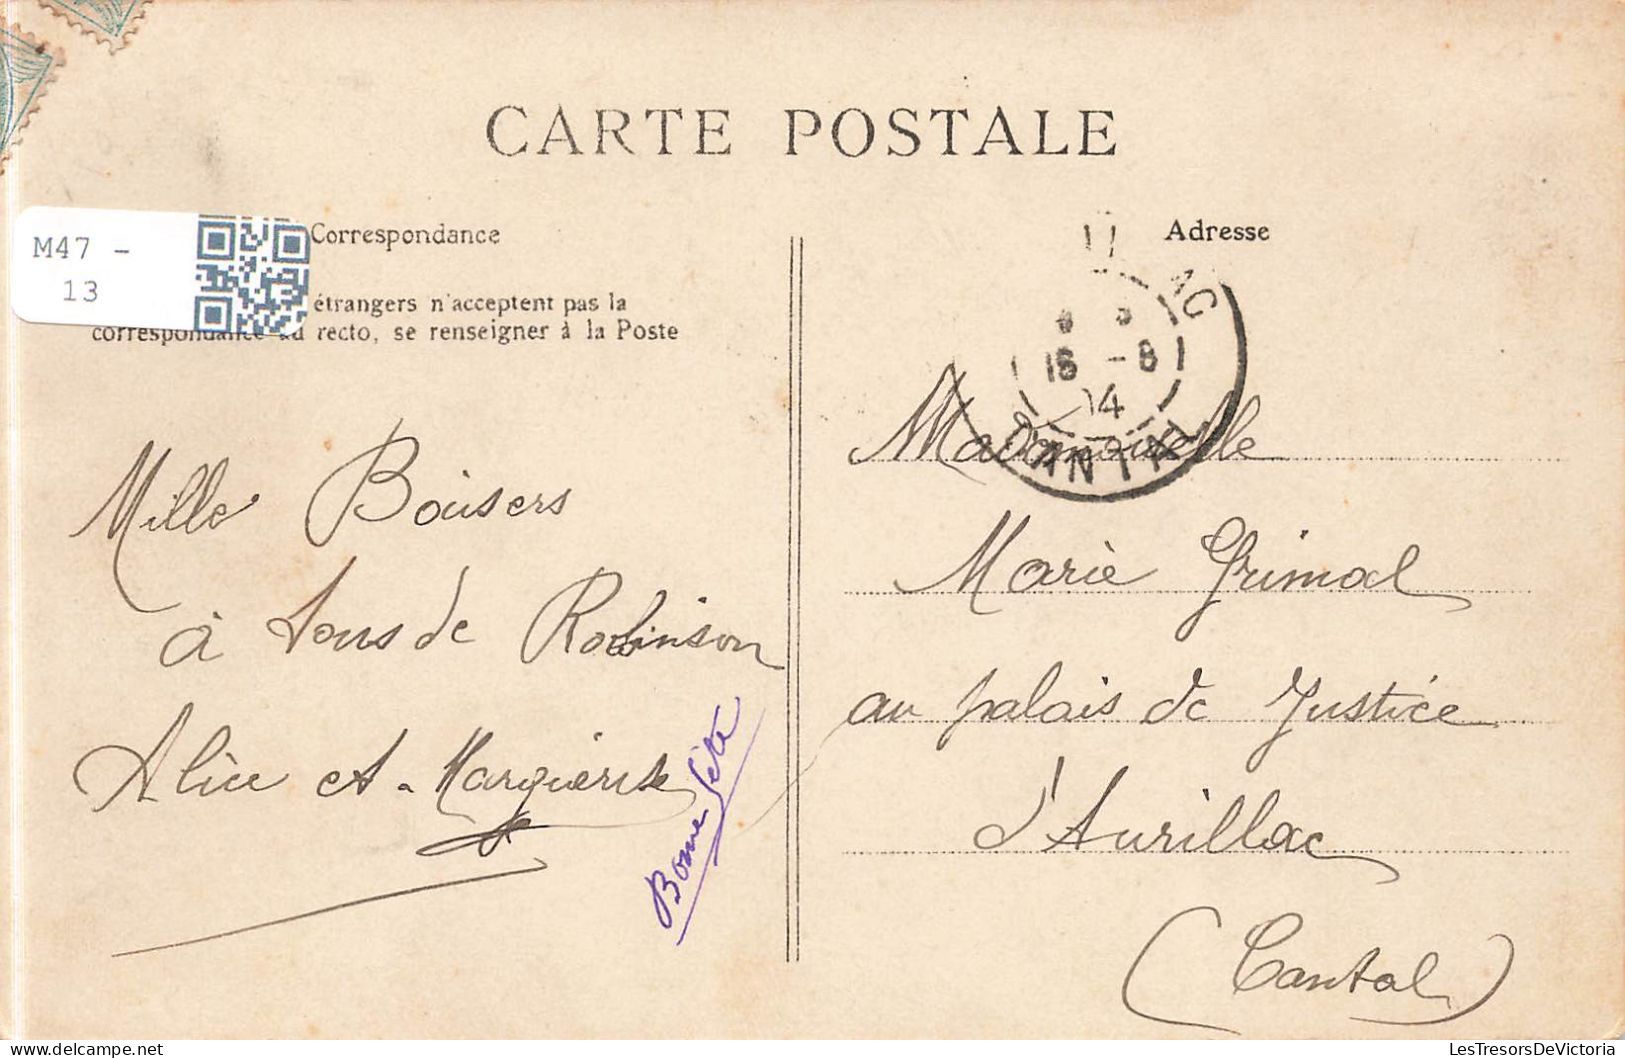 CARTE POSTALE
M47 -
13
Correspondance
étrangers n'acceptent pas la
correspondance au recto, se renseigner à la Poste
Adresse
AC
16 -8
04
CANTAL
Mille Boisers
à tous de Robinson
Alice et Marguerite
Bonne fête
Mademoiselle
Marie Grimal
au palais de Justice
d'Aurillac
(Cantal)
LesTresorsDeVictoria